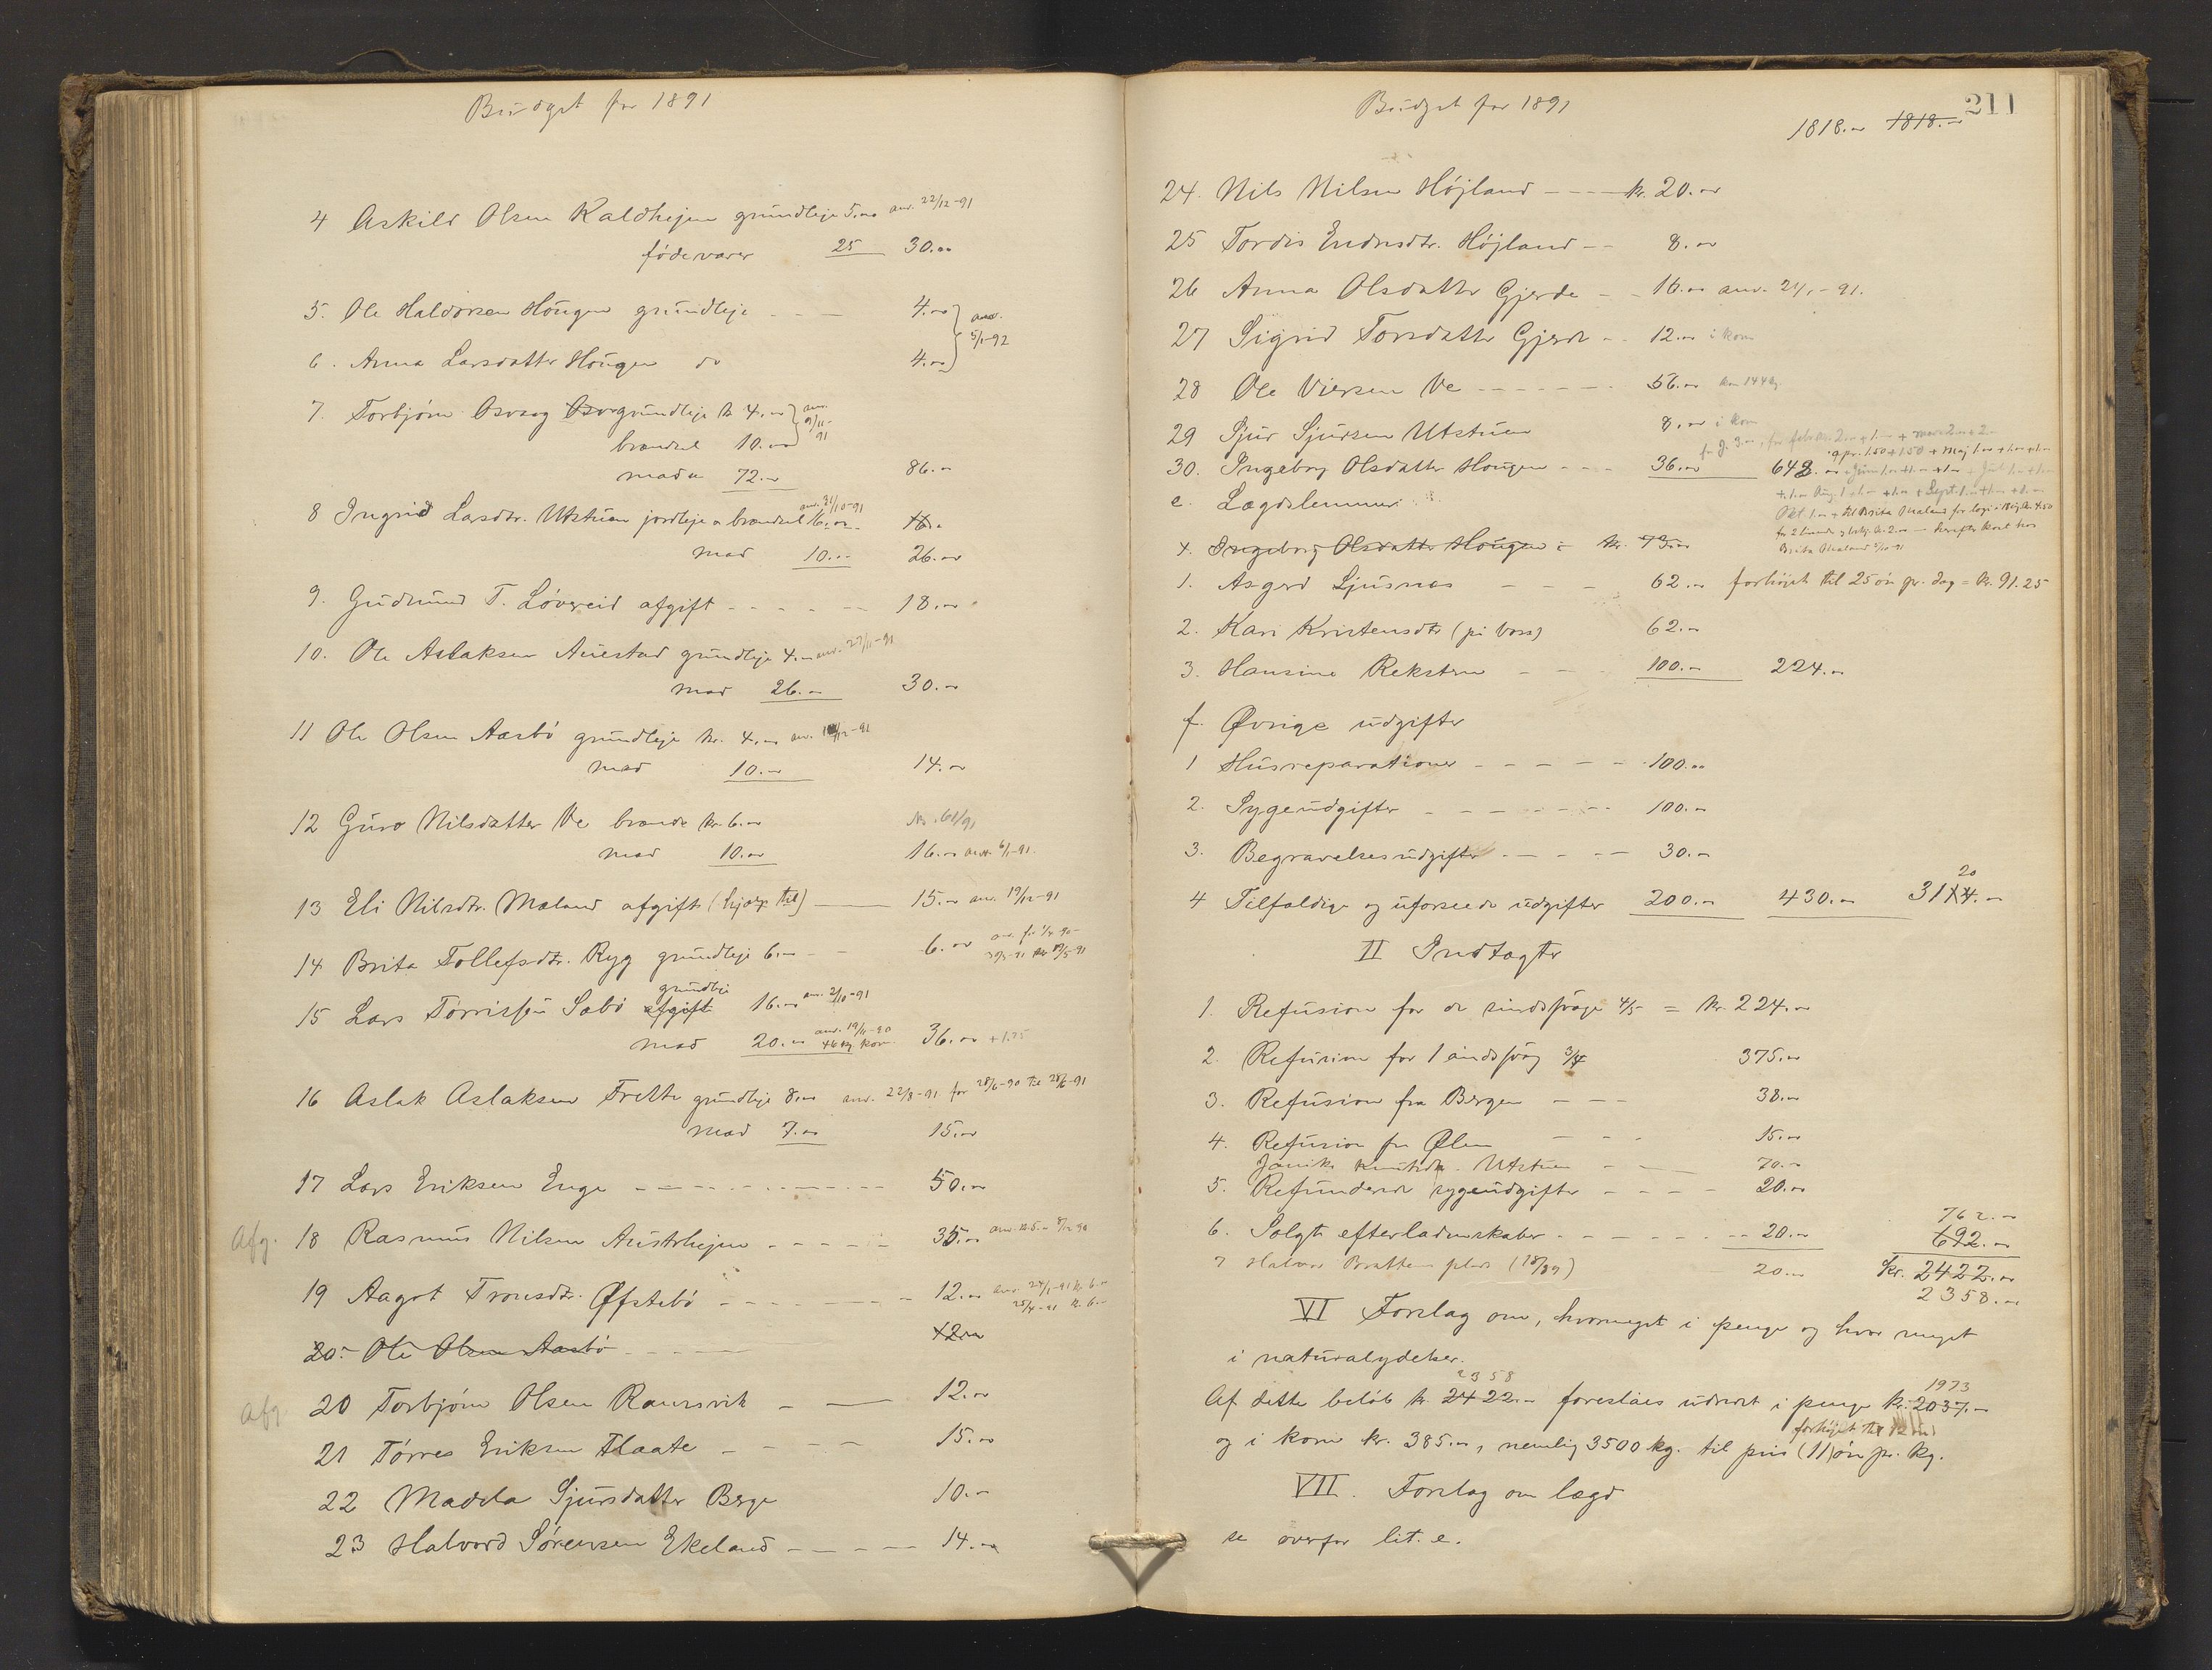 Budget for 1891
4 Askild Olsen Kaldhejen grundleje 5.00 anv. 22/12-91
födevarer 25 30.00
5. Ole Haldorsen Hougen grundleje 4.00
anv. 5/1-92
6. Anna Larsdatter Hougen do 4.00
7. Torbjörn Osvaag grundleje kr 4.00 anv. 9/11-91
brændsel 10.00
mad 72.00 86.00
8 Ingrid Larsdtr. Utstuen jordleje o brændsel 16.00 anv. 31/10-91 16.
mad 10.00 26.00
9. Gudmund T. Lövereid afgift 18.00
10. Ole Aslaksen Auestad grundleje 4.00 anv. 27/11-91
mad 26.00 30.00
11 Ole Olsen Aasbö grundleje kr. 4.00 anv.
mad 10.00 14.00
12 Guro Nilsdatter Ve brænde kr. 6.00
mad 10.00 16.00 anv. 6/1-91.
13 Eli Nilsdtr. Mæland afgift (hjælp til) 15.00 anv. 19/12-91
14 Brita Tollefsdtr. Ryg grundleje 6.00 6.00
15 Lars Törrissen Sabö afgift grundleje 16.00 anv. 2/10-91
mad 20.00 anv. 19/11-90 46 kg korn 36.00 + 1.25
16 Aslak Aslaksen Frette grundleje 8.00 anv. 22/8-91 for 28/6-90 til 28/6-91
mad 7.00 15.00
17 Lars Eriksen Enge 50.00
Afg. 18 Rasmus Nilsen Austrhejen 35.00 anv. kr. 5.00 8/12 90
19 Aagot Tronsdtr. Øfstebö 12.00 anv. 24/1-91 kr. 6.00
25/4-91 kr. 6.00
20. Ole Olsen Aasbö 12.00
Afg. 20 Torbjörn Olsen Ramsvik 12.00
21 Törres Eriksen Flaate 15.00
22 Madela Sjursdatter Berge 10.00
23 Halvord Sörensen Ekeland 14.00
Budget for 1891
211
1818.00 1818.00
24. Nils Nilsen Höjland kr. 20.00
25 Tordis Endresdtr. Höjland 8.00
26 Anna Olsdatter Gjerde 16.00 anv. 24/1-91.
27 Sigrid Torsdatter Gjerde 12.00 i korn
28 Ole Viersen Ve 56.00 korn 144 kg.
29 Sjur Sjursen Utstuen 8.00 i korn
30. Ingeborg Olsdatter Hougen 36.00 648.00
e. Lægdslemmer
1. Ingeborg Olsdatter Hougen kr. 73.00
Brita Mæland
1. Asgerd Ljusnæs 62.00 forhöjet til 25 öre pr. dag = kr. 91.25
2. Kari Kristensdtr (på Voss) 62.00
3. Hansine Reksten 100.00 224.00
f. Øvrige udgifter
1 Husreparationer 100.00
2. Sygeudgifter 100.00
3. Begravelsesudgifter 30.00
4 Tilfældige og uforseede udgifter 200.00 430.00 3120.00
II Indtægter
1. Refusion for de sindssvage 4/5 = kr. 224.00
2. Refusion for 1 åndssvag 3/4 375.00
3. Refusion fra Bergen 38.00
4. Refusion fra Ølen 15.00
Janike Knutsdtr. Utstuen 70.00
5. Refunderede sygeudgifter 20.00
762.00
6. Solgte efterladenskaber 20.00 692.00
7 Halvor Bratten plads (18/89) 20.00 Kr. 2422.00
2358.00
VI Forslag om, hvormeget i penge og hvor meget
i naturalydelser.
2358 1973
Af dette belöb kr. 2422.00 foreslaes udredet i penge kr. 2037.00
forhöjet til 12 öre
og i korn kr. 385.00, nemlig 3500 kg. til pris (11) öre pr. kg.
VII. Forslag om lægd
se ovenfor lit. e.